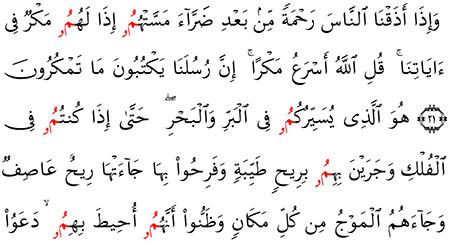 وَإِذَا أَذَقْنَا ٱلنَّاسَ رَحْمَةً مِّنۢ بَعْدِ ضَرَّآءَ مَسَّتْهُمُۥ إِذَا لَهُمُۥ مَكْرٌ فِى
ءَايَاتِنَا ۚ قُلِ ٱللَّهُ أَسْرَعُ مَكْرًا ۚ إِنَّ رُسُلَنَا يَكْتُبُونَ مَا تَمْكُرُونَ
﴿٢١﴾ هُوَ ٱلَّذِى يُسَيِّرُكُمُۥ فِى ٱلْبَرِّ وَٱلْبَحْرِ ۖ حَتَّىٰ إِذَا كُنتُمُۥ فِى
ٱلْفُلْكِ وَجَرَيْنَ بِهِمُۥ بِرِيحٍ طَيِّبَةٍ وَفَرِحُوا۟ بِهَا جَآءَتْهَا رِيحٌ عَاصِفٌ
وَجَآءَهُمُ ٱلْمَوْجُ مِن كُلِّ مَكَانٍ وَظَنُّوٓا۟ أَنَّهُمُۥٓ أُحِيطَ بِهِمُۥ ۙ دَعَوُا۟